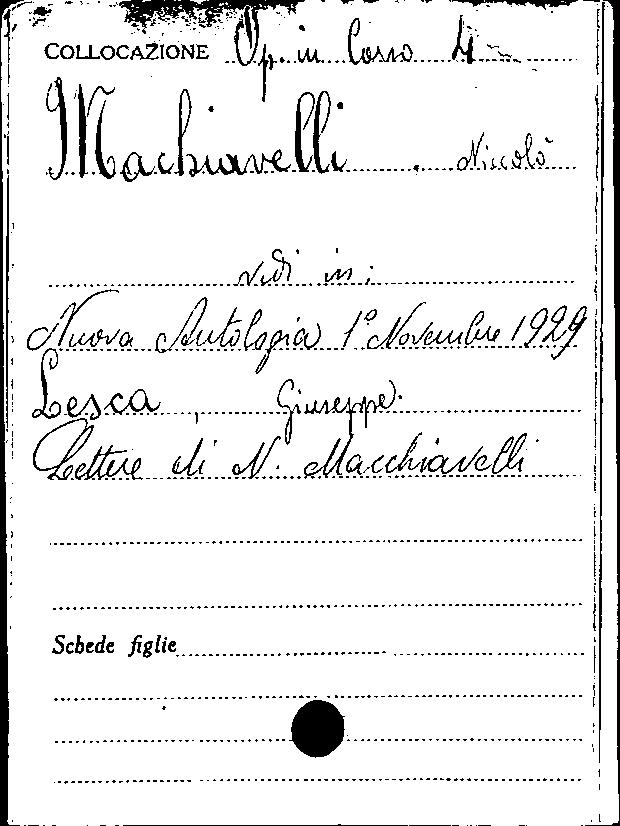 COLLOCAZIONE Op. in Corso 4
Machiavelli . Niccolò
vedi in:
Nuova Antologia 1° Novembre 1929
Lesca, Giuseppe.
Lettere di N. Macchiavelli
Schede figlie